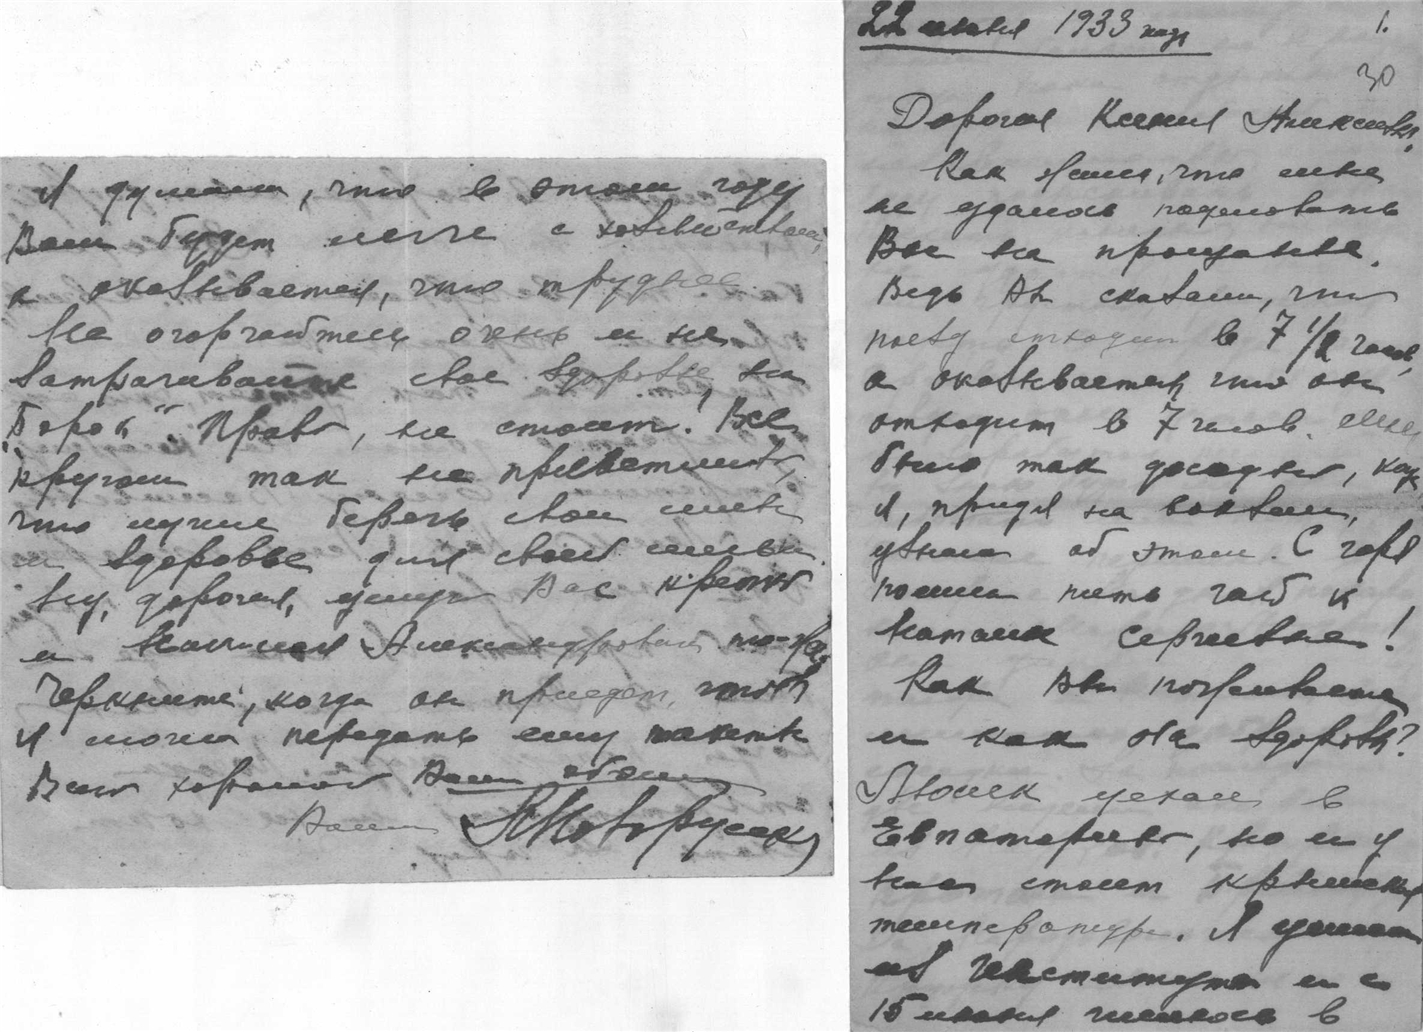 Я думала, что в этом году
Вам будет легче с хозяйством,
а оказывается, что труднее.
Не огорчайтесь очень и не
затрачивайте свое здоровье на
"Борок". Право, не стоит! Все
кругом так не приветливо,
что лучше беречь свои силы
и здоровье для своей семьи.
Ну, дорогая, целую Вас крепко
и Александровича тоже.
Черкните, когда он приедет, чтобы
я могла передать ему
Всего хорошего Вам обоим
Ваша Новорусск
22 июня 1933 года
1.
30
Дорогая Ксения Алексеевна,
Как жаль, что мне
не удалось поцеловать
Вас на прощанье.
Ведь Вы сказали, что
поезд отходит в 7 1/2 часов,
а оказывается, что он
отходит в 7 часов. Мне
было так досадно, когда
я, придя на вокзал,
узнала об этом. С горя
пошла пить чай к
Наталье Сергеевне!
Как Вы поживаете
и как Ва здоровье?
уехал в
Евпаторию, но и у
нас стоит крымская
температура. Я ушла
из Института и с
15 июня числюсь в